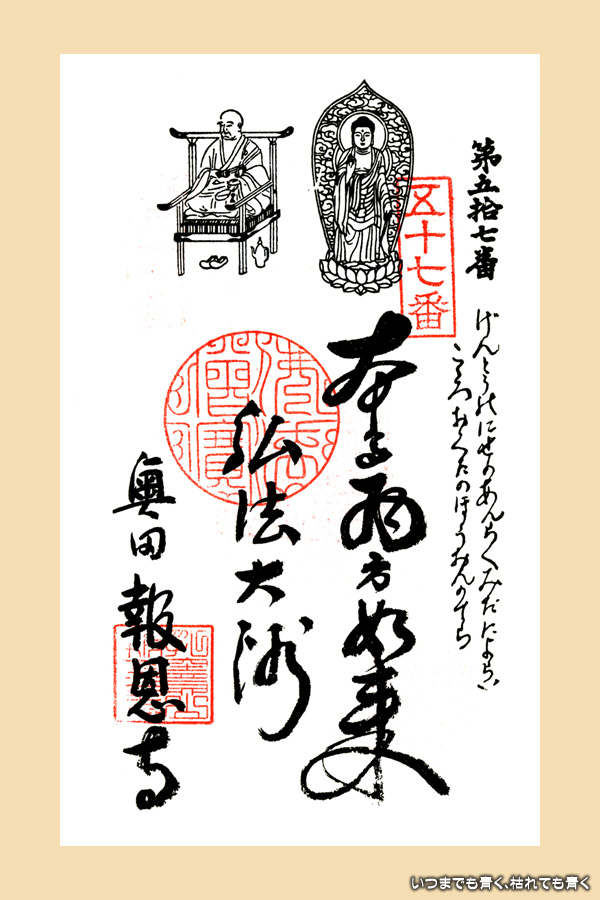 第五拾七番
五十七番
げんとうのにせのあんらくみだによらい
こころおくたのほうおんのてら
本尊 如来
弘法大師
奥田 報恩寺
いつまでも青く、枯れても青く